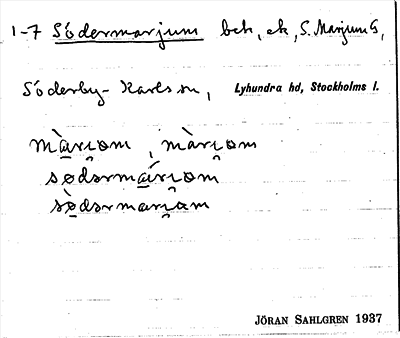 1-7 Södermarjum bek, ek, S. Marjum G,
Söderby-Karls sn, Lyhundra hd, Stockholms l.
màri̯ɷm, màri̯ɷm
sødərmári̯ɷm
sø̀dərmari̯ɷm
JÖRAN SAHLGREN 1937